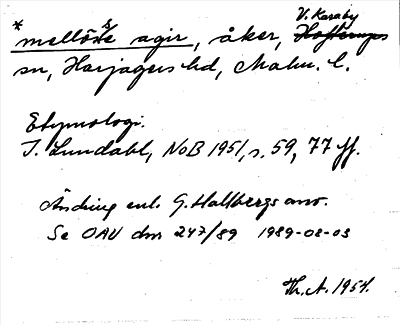 V. Karaby
* mellöse agir, åker, Hofterups
sn, Harjagers hd, Malm. l.
Etymologi.
I. Lundahl, NoB 1951, s. 59, 77 ff.
Ändring enl. G. Hallbergs anv.
Se OAU dnr 247/89 1989-08-03
Th. A. 1954.